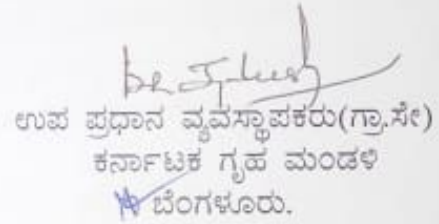 ಉಪ ಪ್ರಧಾನ ವ್ಯವಸ್ಥಾಪಕರು(ಗ್ರಾ.ಸೇ)
ಕರ್ನಾಟಕ ಗೃಹ ಮಂಡಳಿ
ಬೆಂಗಳೂರು.